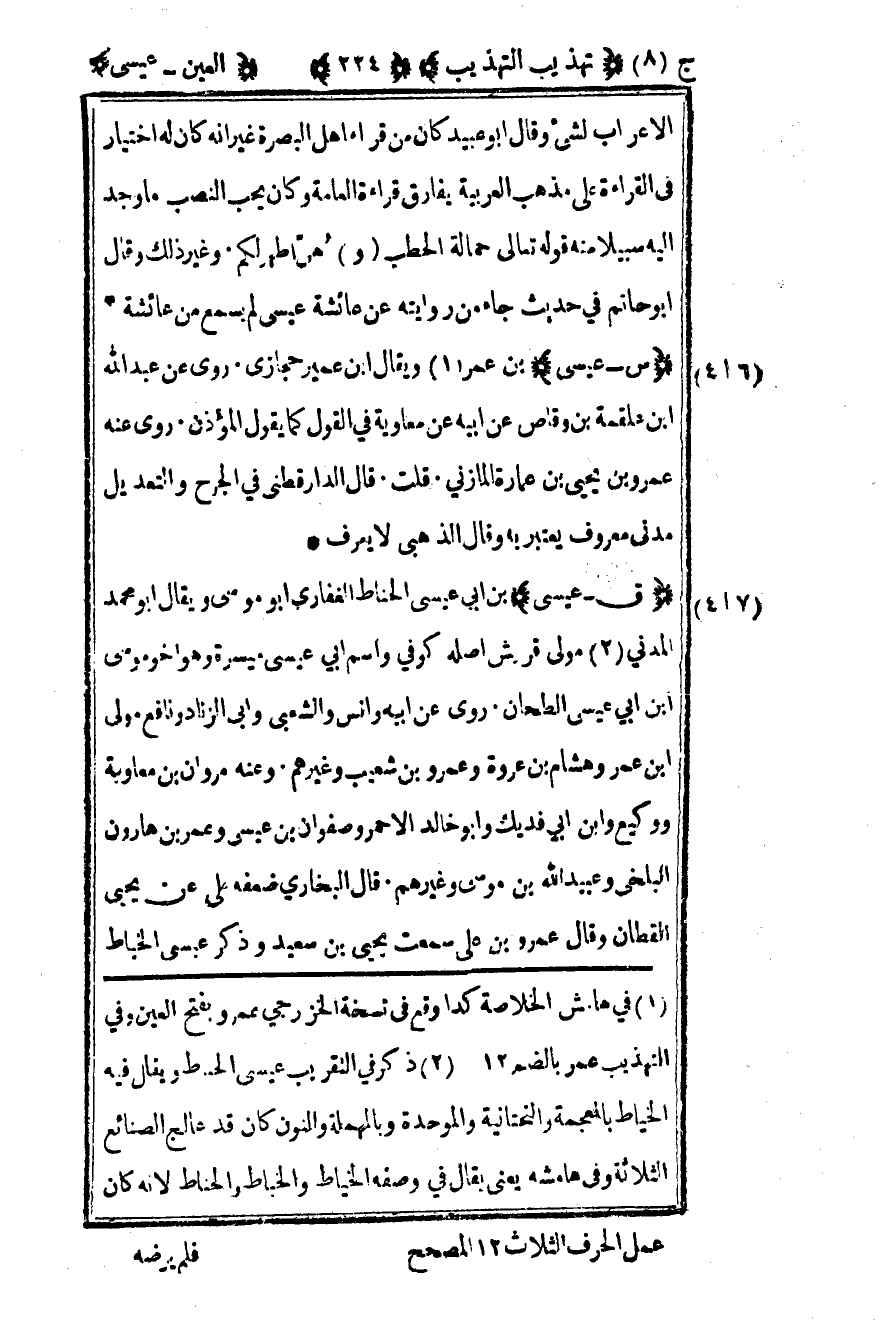 ج (٨) ﴿ تهذيب التهذيب ﴾ ﴿ ٢٢٤ ﴾ ﴿ العين ــ عيسى ﴾
الاعراب لشئ وقال ابو عبيد كان من قراء اهل البصرة غير انه كان له اختيار
فى القراءة على مذهب العربية يفارق قراءة العامة وكان يحب النصب ما وجد
اليه سبيلا منه قوله تعالى حمالة الحطب ( و ) هنّ اطهر لكم ٠ وغير ذلك وقال
ابو حاتم في حديث جاء من روايته عن عائشة عيسى لم يسمع من عائشة *
(٤١٦) ﴿ س ــ عيسى ﴾ بن عمر (١) ويقال ابن عمير حجازى ٠ روى عن عبدالله
ابن علقمة بن وقاص عن ابيه عن معاوية في القول كما يقول المؤذن ٠ روى عنه
عمرو بن يحيى بن عمارة المازني ٠ قلت ٠ قال الدارقطنى في الجرح والتعديل
مدنى معروف يعتبر به وقال الذهبى لا يعرف *
(٤١٧) ﴿ ق ــ عيسى ﴾ بن ابي عيسى الحناط الغفاري ابو موسى ويقال ابو محمد
المدني (٢) مولى قريش اصله كوفي واسم ابي عيسى ميسرة وهو اخو موسى
ابن ابي عيسى الطحان ٠ روى عن ابيه وانس والشعبى وابى الزناد ونافع مولى
ابن عمر وهشام بن عروة وعمرو بن شعيب وغيرهم ٠ وعنه مروان بن معاوية
ووكيع وابن ابي فديك وابو خالد الاحمر وصفوان بن عيسى وعمر بن هارون
البلخى وعبيد الله بن موسى وغيرهم ٠ قال البخاري ضعفه علي عن يحيى
القطان وقال عمرو بن على سمعت يحيى بن سعيد وذكر عيسى الخباط
(١) في هامش الخلاصة كذا وقع فى نسخة الخزرجي عمرو بفتح العين وفي
التهذيب عمر بالضم ١٢ (٢) ذكر في التقريب عيسى الحناط ويقال فيه
الخياط بالمعجمة والتحتانية والموحدة وبالمهملة والنون كان قد عالج الصنائع
الثلاثة وفى هامشه يعنى يقال في وصفه الخياط والخباط والحناط لانه كان
عمل الحرف الثلاث ١٢ المصحح فلم يرضه